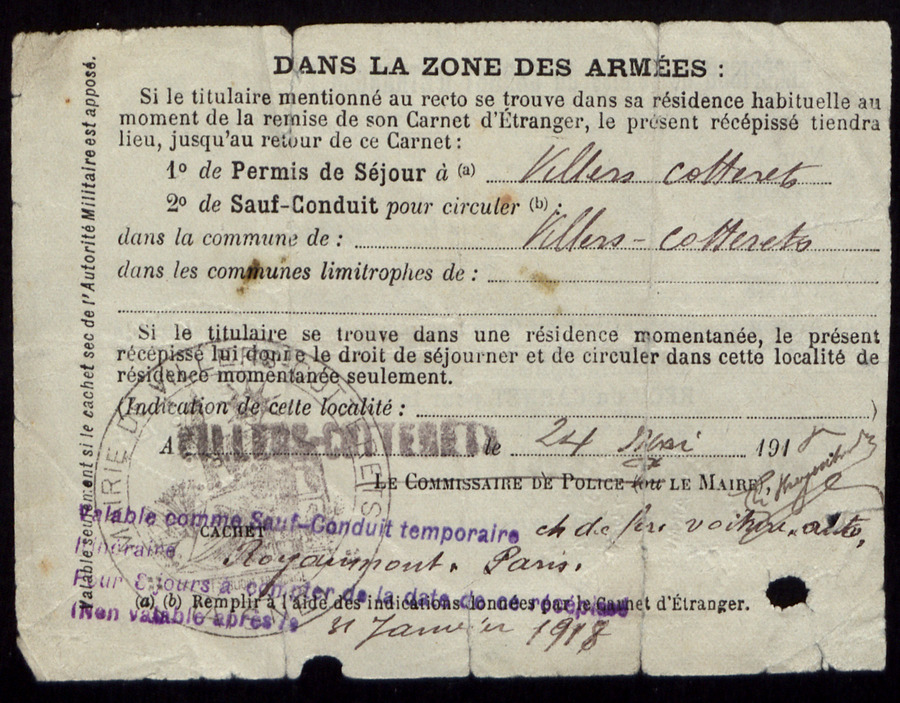 DANS LA ZONE DES ARMÉES :
Si le titulaire mentionné au recto se trouve dans sa résidence habituelle au
moment de la remise de son Carnet d'Étranger, le présent récépissé tiendra
lieu, jusqu'au retour de ce Carnet :
1º de Permis de Séjour à (a) Villers cotterets
2º de Sauf-Conduit pour circuler (b) :
dans la commune de : Villers-cotterets
dans les communes limitrophes de :
Si le titulaire se trouve dans une résidence momentanée, le présent
récépissé lui donne le droit de séjourner et de circuler dans cette localité de
résidence momentanée seulement.
(Indication de cette localité : )
A VILLERS-COTTERETS le 24 1918
LE COMMISSAIRE DE POLICE (ou LE MAIRE),
Valable comme Sauf-Conduit temporaire ch de fer voiture auto,
CACHET
Itinéraire Royaumont. Paris.
Pour 8 jours à compter de la date de ce récépissé
(a) (b) Remplir à l'aide des indications données par le Carnet d'Étranger.
(Non valable après le 31 Janvier 1918
Valable seulement si le cachet sec de l'Autorité Militaire est apposé.
MAIRIE DE VILLERS-COTTERETS